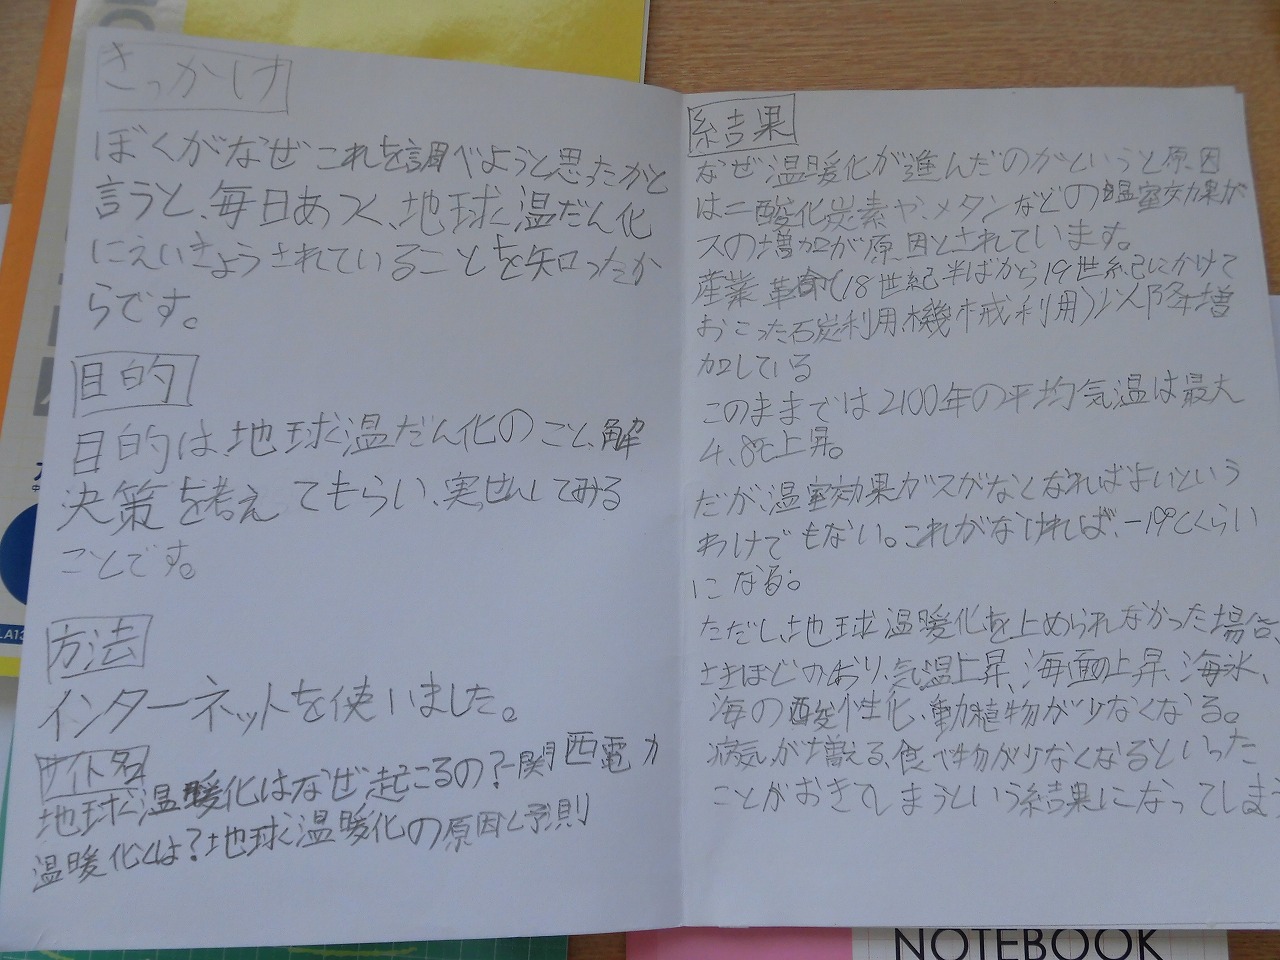 きっかけ
ぼくがなぜこれを調べようと思ったかと
言うと、毎日あつく、地球温だん化
にえいきょうされていることを知ったか
らです。
目的
目的は地球温だん化のこと、解
決策を考えてもらい、実せんしてみる
ことです。
方法
インターネットを使いました。
サイト名
地球温暖化はなぜ起こるの?-関西電力
温暖化とは?地球温暖化の原因と予測
結果
なぜ温暖化が進んだのかというと原因
は二酸化炭素や、メタンなどの温室効果が
スの増加が原因とされています。
産業革命(18世紀半ばから19世紀にかけて
おこった石炭利用、機械利用)以降増
加している
このままでは2100年の平均気温は最大
4.8℃上昇。
だが、温室効果ガスがなくなればよいという
わけでもない。これがなければ、-19℃くらい
になる。
ただし、地球温暖化を止められなかった場合、
さきほどのとおり、気温上昇、海面の上昇、海氷、
海の酸性化、動植物が少なくなる。
病気が増える、食べ物が少なくなるといった
ことがおきてしまうという結果になってしまう
NOTEBOOK
LA13